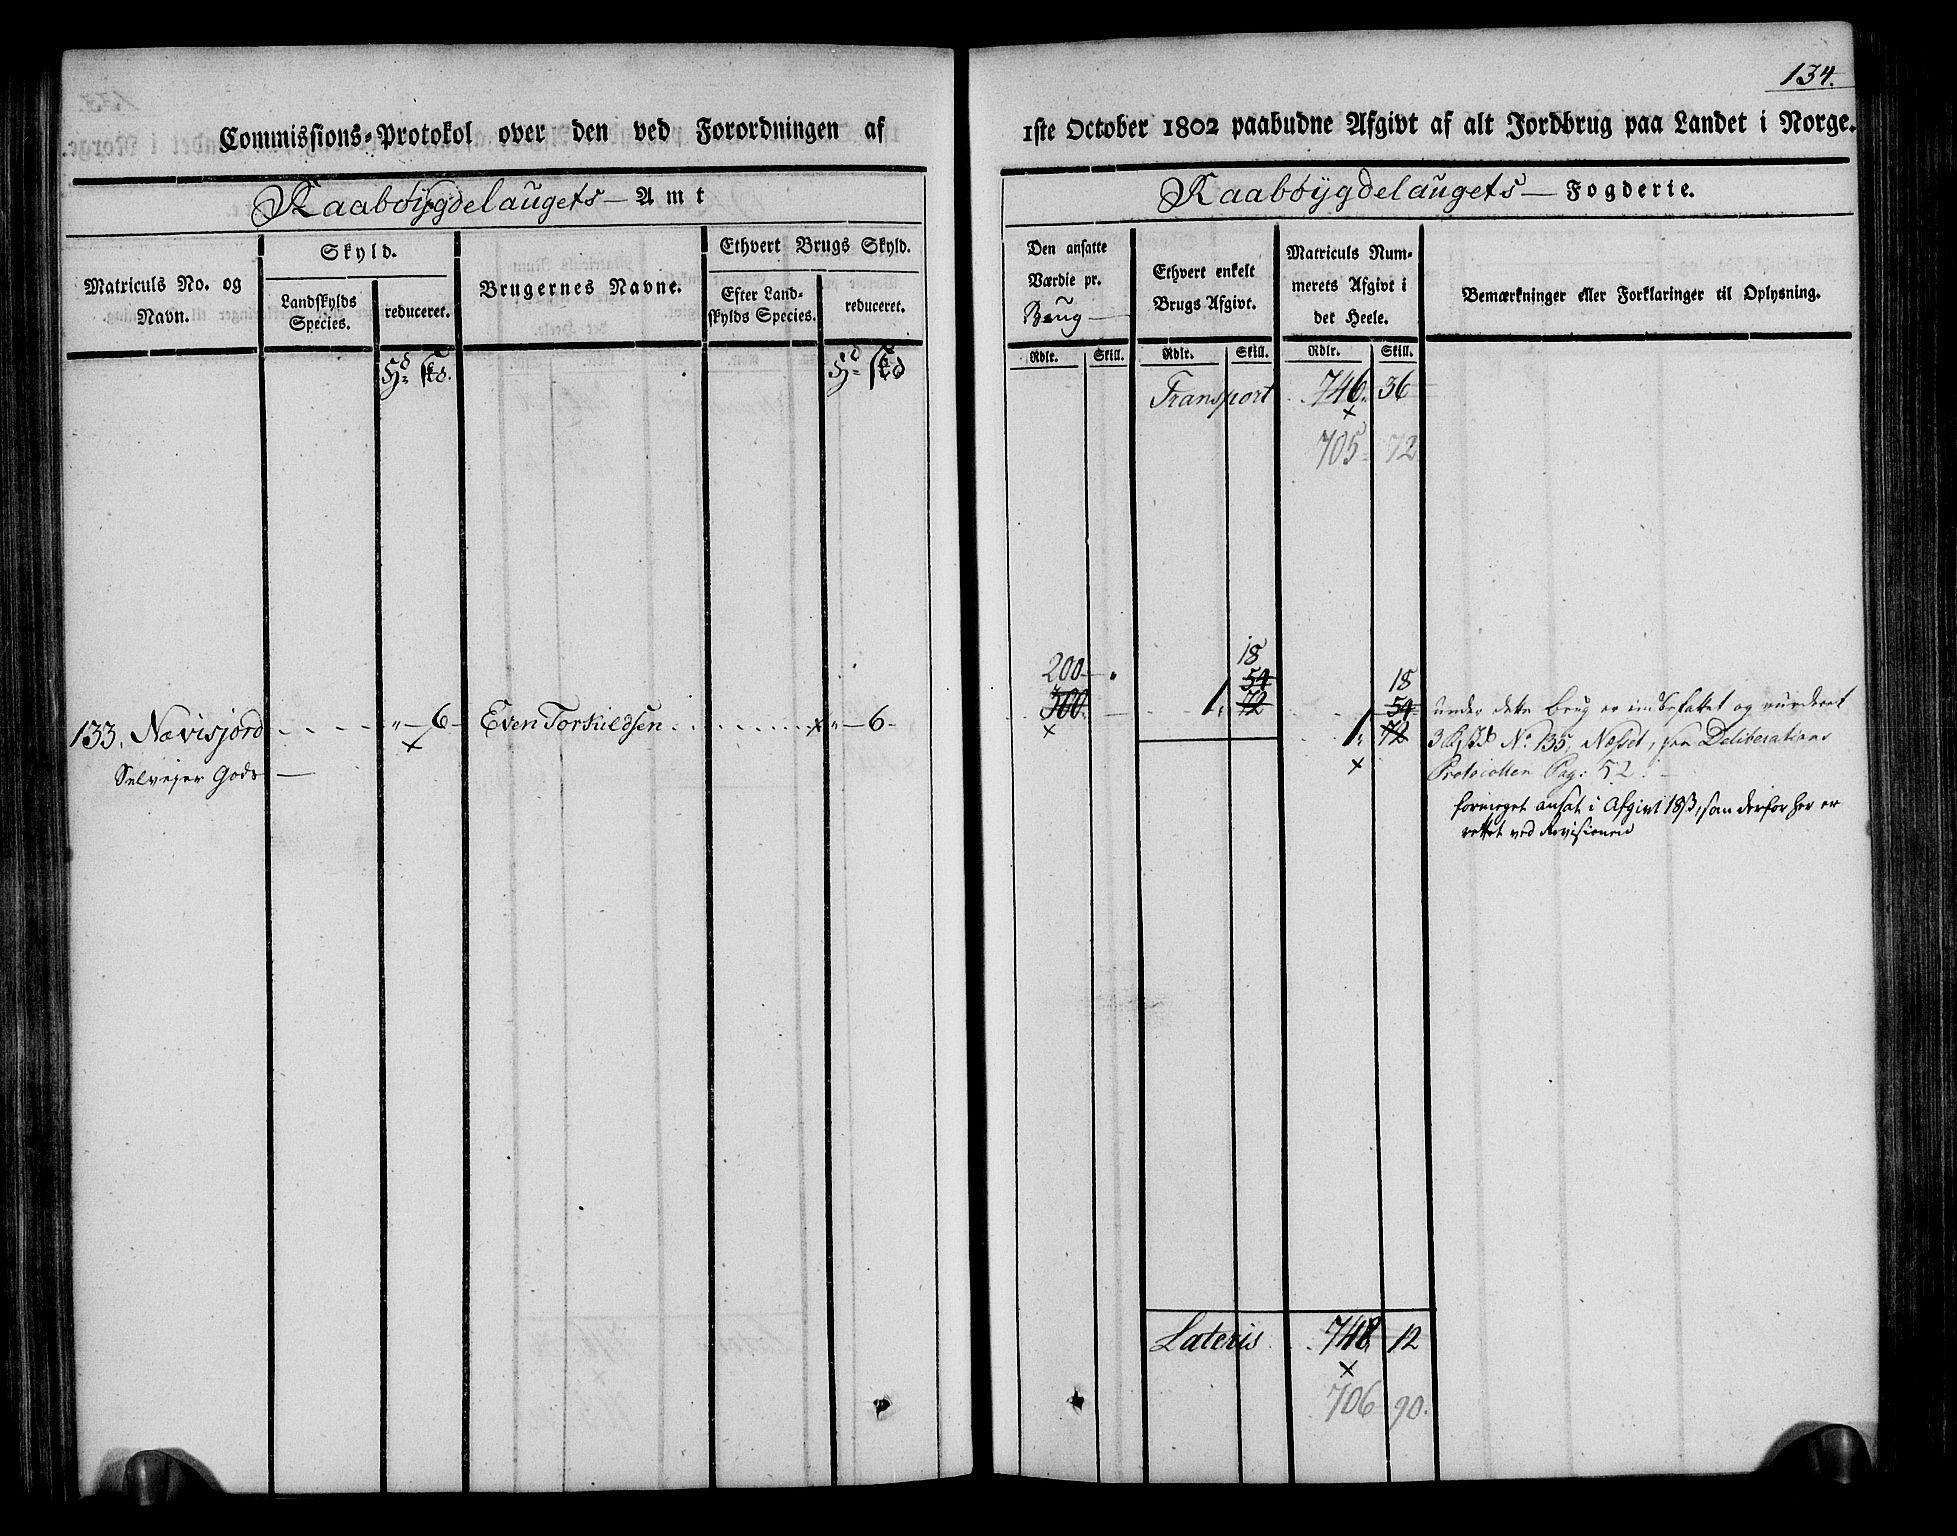 134.
Commissions-Protokol over den ved Forordningen af
1ste October 1802 paabudne Afgivt af alt Jordbrug paa Landet i Norge.
Raabøygdelaugets — Amt
Raabøygdelaugets — Fogderie.
Matriculs No. og Navn.
Skyld.
Landskylds Species.
reduceret.
Brugernes Navne.
Ethvert Brugs Skyld.
Efter Landskylds Species.
reduceret.
Den ansatte Værdie pr. Brug
Ethvert enkelt Brugs Afgivt.
Matriculs Nummerets Afgivt i det Heele.
Bemærkninger eller Forklaringer til Oplysning.
Rdlr. Skill. Rdlr. Skill. Rdlr. Skill.
Transport 746. 36
×
705 72
18
200 — 54 18
300. — 1. 72 54
× 1. 72
×
133, Nævisjord - - - - „ — 6 — Even Torkildsen . . . . . . × „ — 6 -
×
Selvejer Gods —
under dette Brug er indbefattet og vurderet
No 135, Næsset, Deliberations
Protocollen Pag: 52. —
formeget ansat i Afgivt som derfor her er
rettet ved Revisionen
Lateris 748. 12
×
706 90.